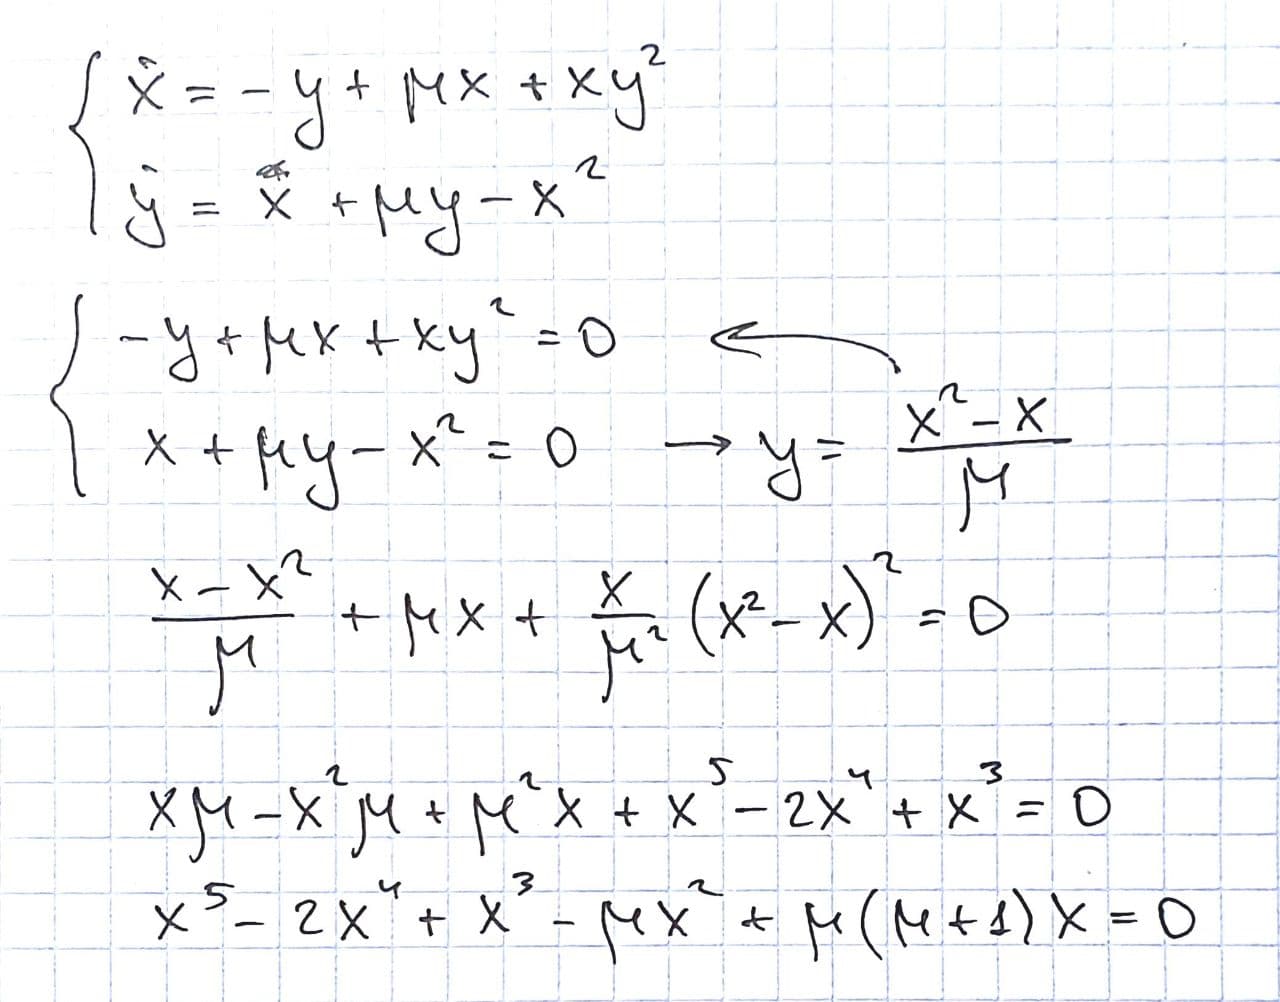 ẋ = -y + μx + xy²
ẏ = x + μy - x²
-y + μx + xy² = 0 ←
x + μy - x² = 0 → y = (x² - x)/μ
(x - x²)/μ + μx + x/μ² (x² - x)² = 0
xμ - x²μ + μ²x + x⁵ - 2x⁴ + x³ = 0
x⁵ - 2x⁴ + x³ - μx² + μ(μ+1)x = 0